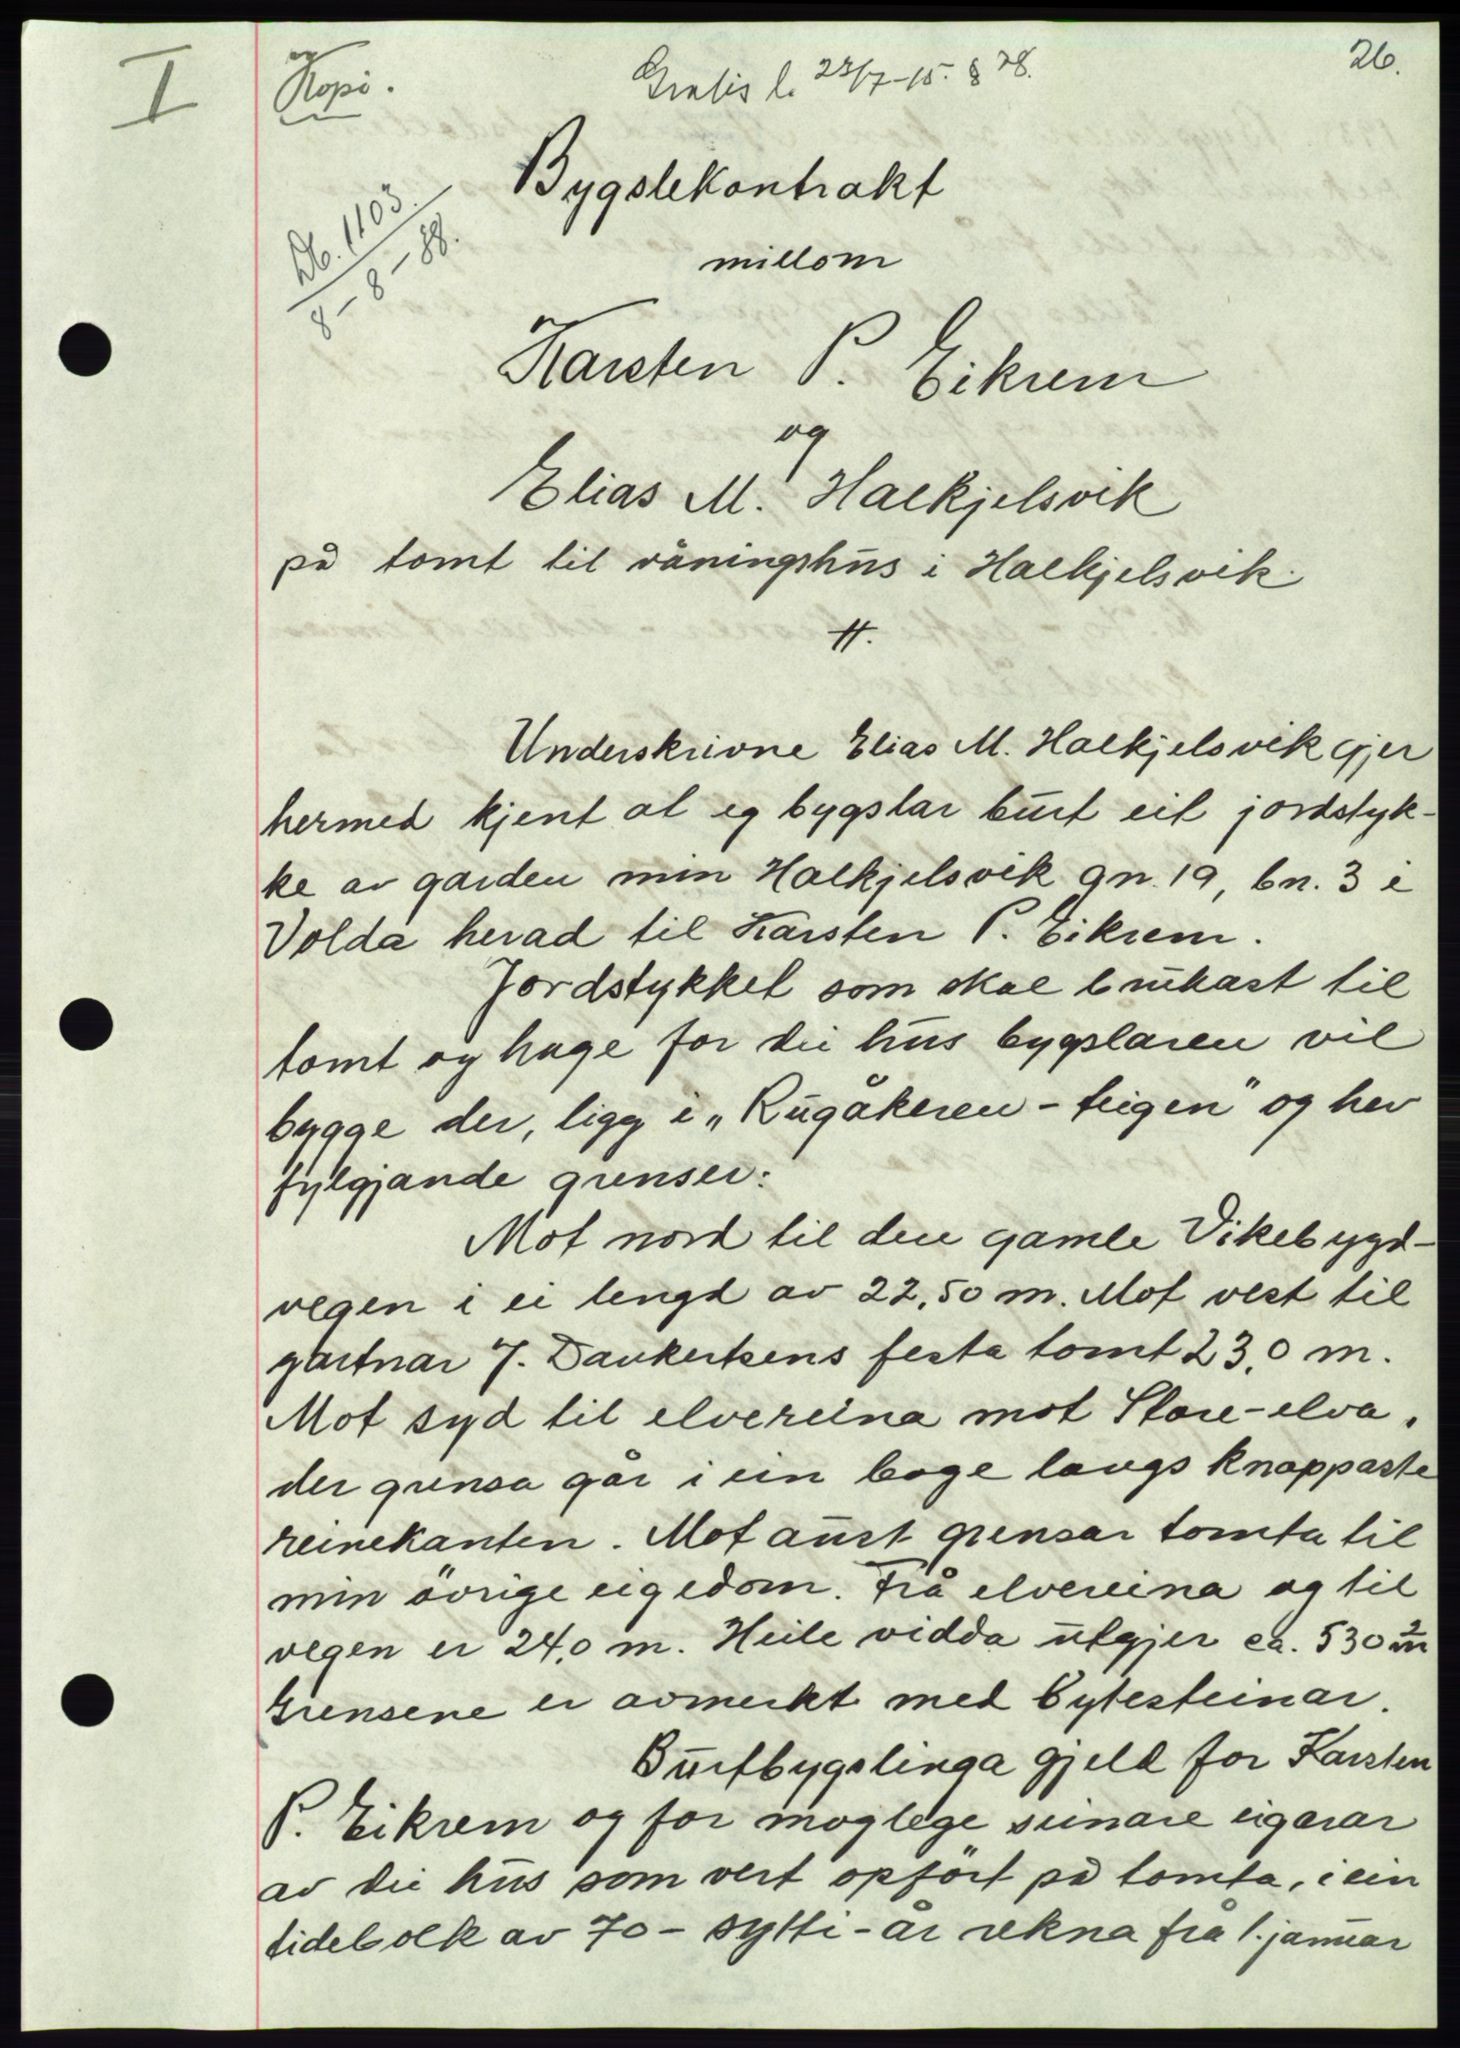 I
Kopi.
Gratis l. 23/7-15. § 28.
26.
Db. 1103.
8-8-38.
Bygslekontrakt
millom
Karsten P. Eikrem
og
Elias M. Halkjelsvik
på tomt til våningshus i Halkjelsvik.
Underskrivne Elias M. Halkjelsvik gjer
hermed kjent at eg bygslar burt eit jordstyk-
ke av garden min Halkjelsvik gn. 19, bn. 3 i
Volda herad til Karsten P. Eikrem.
Jordstykket som skal brukast til
tomt og hage for dei hus bygslaren vil
bygge der, ligg i „Rugåkeren-teigen" og hev
fylgjande grenser:
Mot nord til den gamle Vikebygd-
vegen i ei lengd av 22,50 m. Mot vest til
gartnar J. Dankertsens festa tomt 23,0 m.
Mot syd til elvereina mot Store-elva,
der grensa går i ein boge langs knappaste
reinekanten. Mot aust grensar tomta til
min övrige eigedom. Frå elvereina og til
vegen er 24,0 m. Heile vidda utgjer ca. 530 m²
Grensene er avmerkt med bytesteinar.
Burtbygslinga gjeld for Karsten
P. Eikrem og for moglege seinare eigarar
av dei hus som vert opfört på tomta, i ein
tidebolk av 70 - sytti - år rekna frå 1. januar